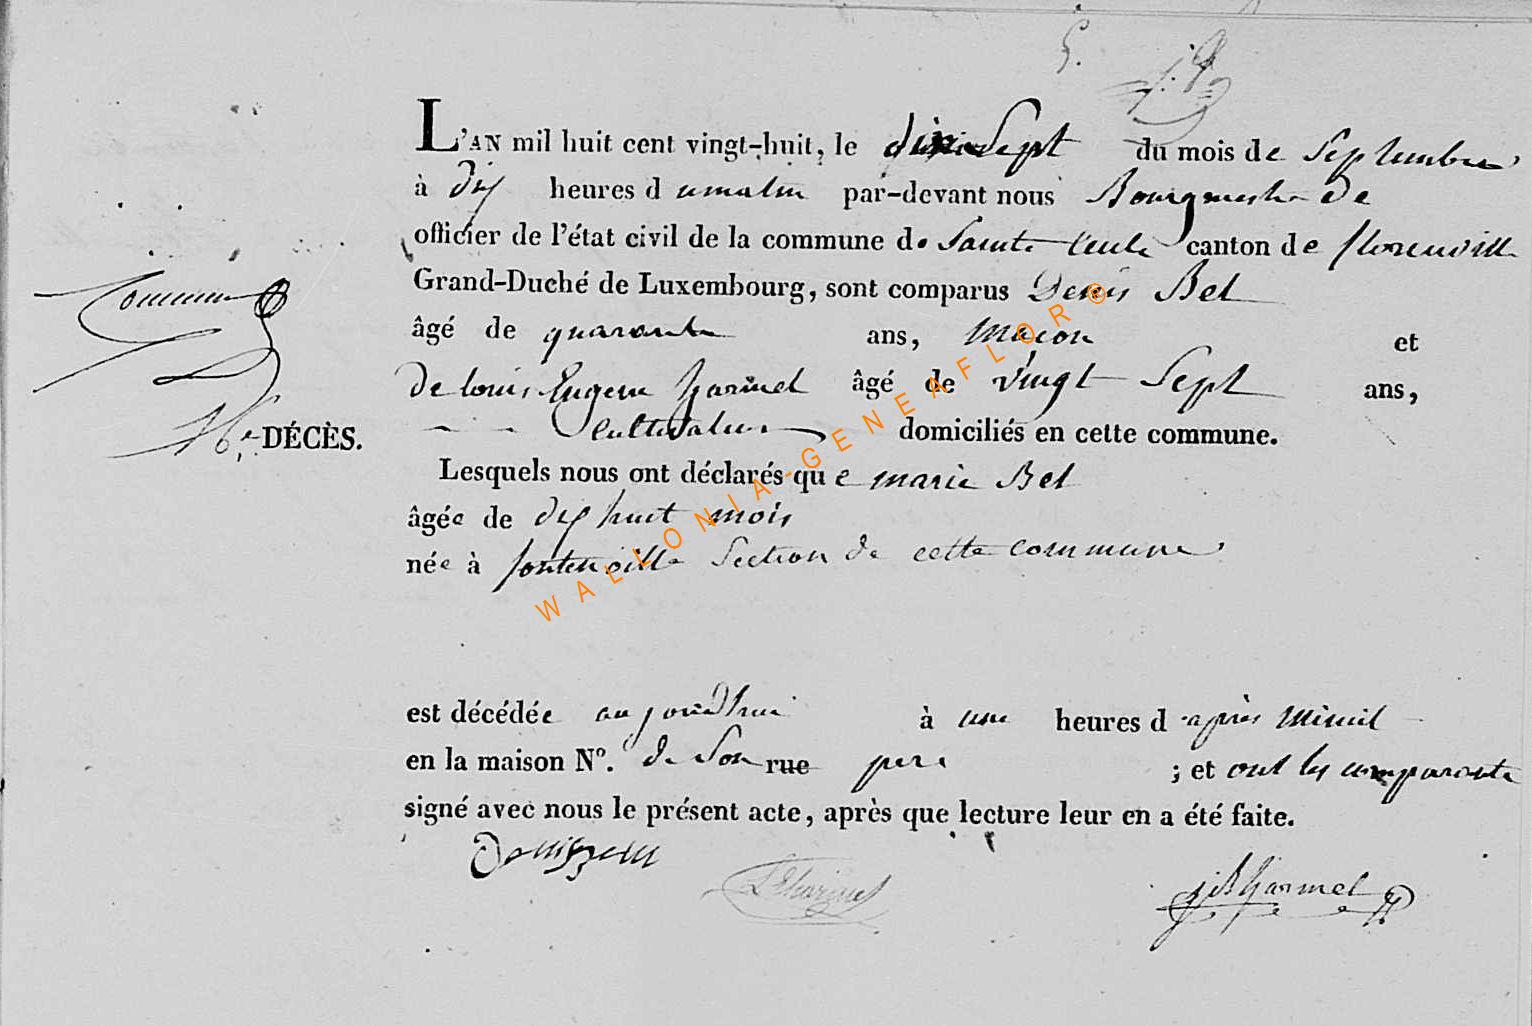 L'AN mil huit cent vingt-huit, le dix Sept du mois de Septembre
à dix heures d u matin par-devant nous Bourgmestre de
officier de l'état civil de la commune de Sainte Cecile canton de florenville
Grand-Duché de Luxembourg, sont comparus Denis Bel
âgé de quarante ans, macon et
de louis Eugene harmel âgé de vingt Sept ans,
cultivateur domiciliés en cette commune.
16e DÉCÈS.
Lesquels nous ont déclarés que marie Bel
âgée de dix huit mois
née à fontenoille Section de cette commune
WALLONIA-GENEAFLOR®
est décédée aujourdhui à une heures d'après minuit
en la maison N°. de Son rue pere ; et ont les comparants
signé avec nous le présent acte, après que lecture leur en a été faite.
LEharmel
jBharmel